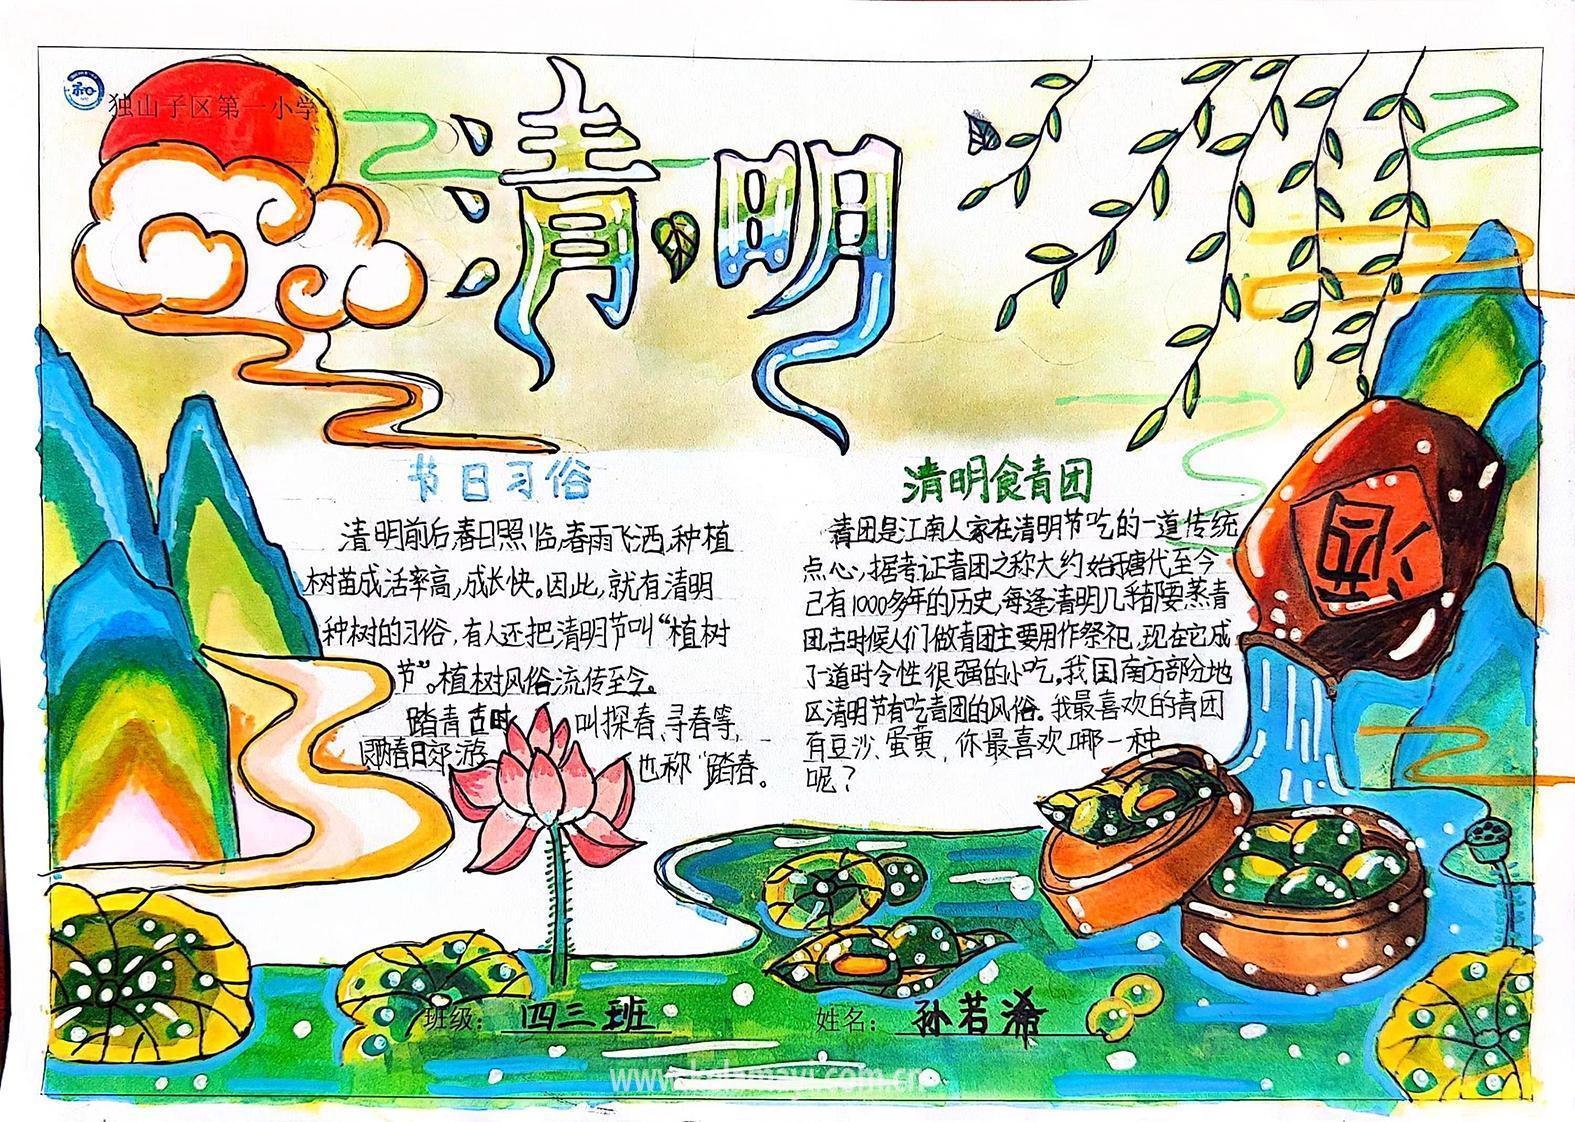 独山子区第一小学
清明
节日习俗
清明前后春日照临,春雨飞洒,种植
树苗成活率高,成长快。因此,就有清明
种树的习俗,有人还把清明节叫“植树
节”。植树风俗流传至今。
踏青古时 叫探春、寻春等,
即春日郊游 也称“踏春。
清明食青团
青团是江南人家在清明节吃的一道传统
点心,据考证青团之称大约始于唐代至今
己有1000多年的历史,每逢清明几乎都要蒸青
团古时候人们做青团主要用作祭祀,现在它成
了道时令性很强的小吃。我国南方部分地
区清明节有吃青团的风俗。我最喜欢的青团
有豆沙、蛋黄,你最喜欢哪一种
呢?
酒
班级: 四三班
姓名: 孙若
www.kelamayi.com.cn